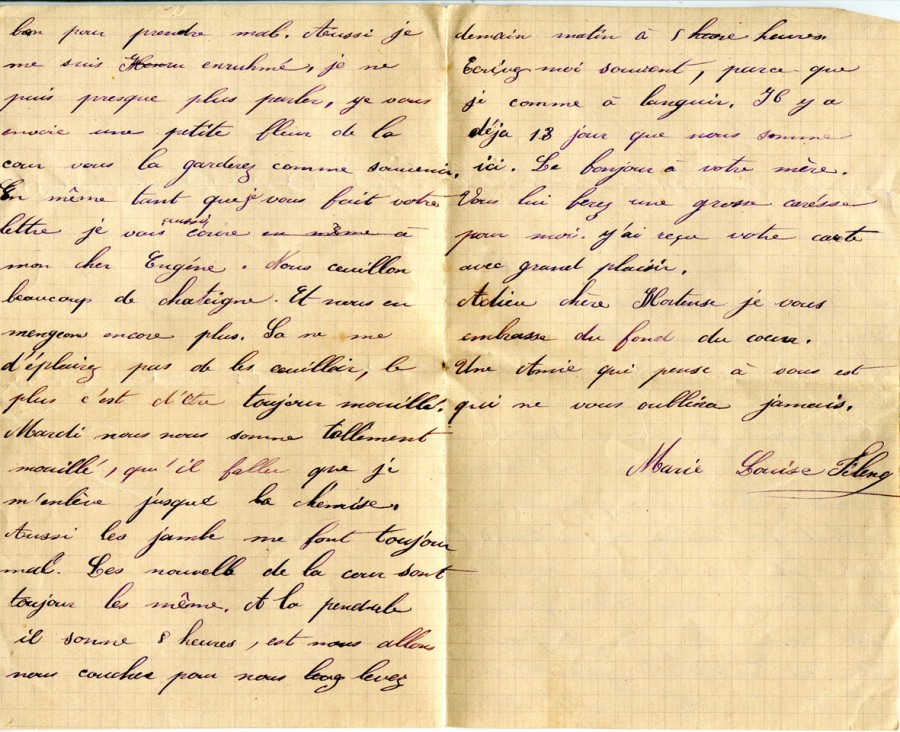 bon pour prendre mal. Aussi je
me suis enruhmé, je ne
puis presque plus parler, ye vous
envoie une petite fleur de la
cour vous la garderez comme souvenir,
En même tant que je vous fait votre
lettre je vais aussi écrire en même à
mon cher Eugéne. Nous ceuillon
beaucoup de chateigne. Et nous en
mengeon encore plus. Sa ne me
d'éplairez pas de les ceuilloir, le
plus c'est d'être toujour mouillé.
Mardi nous nous somne tellement
mouillé, qu'il fallu que je
m'enlève jusque la chemise.
Aussi les jambe me font toujour
mal. Les nouvelle de la cour sont
toujour les même. A la pendule
il sonne 8 heures, est nous allons
nous coucher pour nous levez
demain matin à 5 heures.
Ecrivez moi souvent, parce que
je comme à languir. Il y a
déja 13 jour que nous somme
ici. Le bonjour à votre mère.
Vous lui ferez une grosse caresse
pour moi. y'ai reçu votre carte
avec grand plaisir.
Adieu chère Hortense je vous
embrasse du fond du cœur.
Une Amie qui pense à vous est
qui ne vous oubliera jamais.
Marie Louise